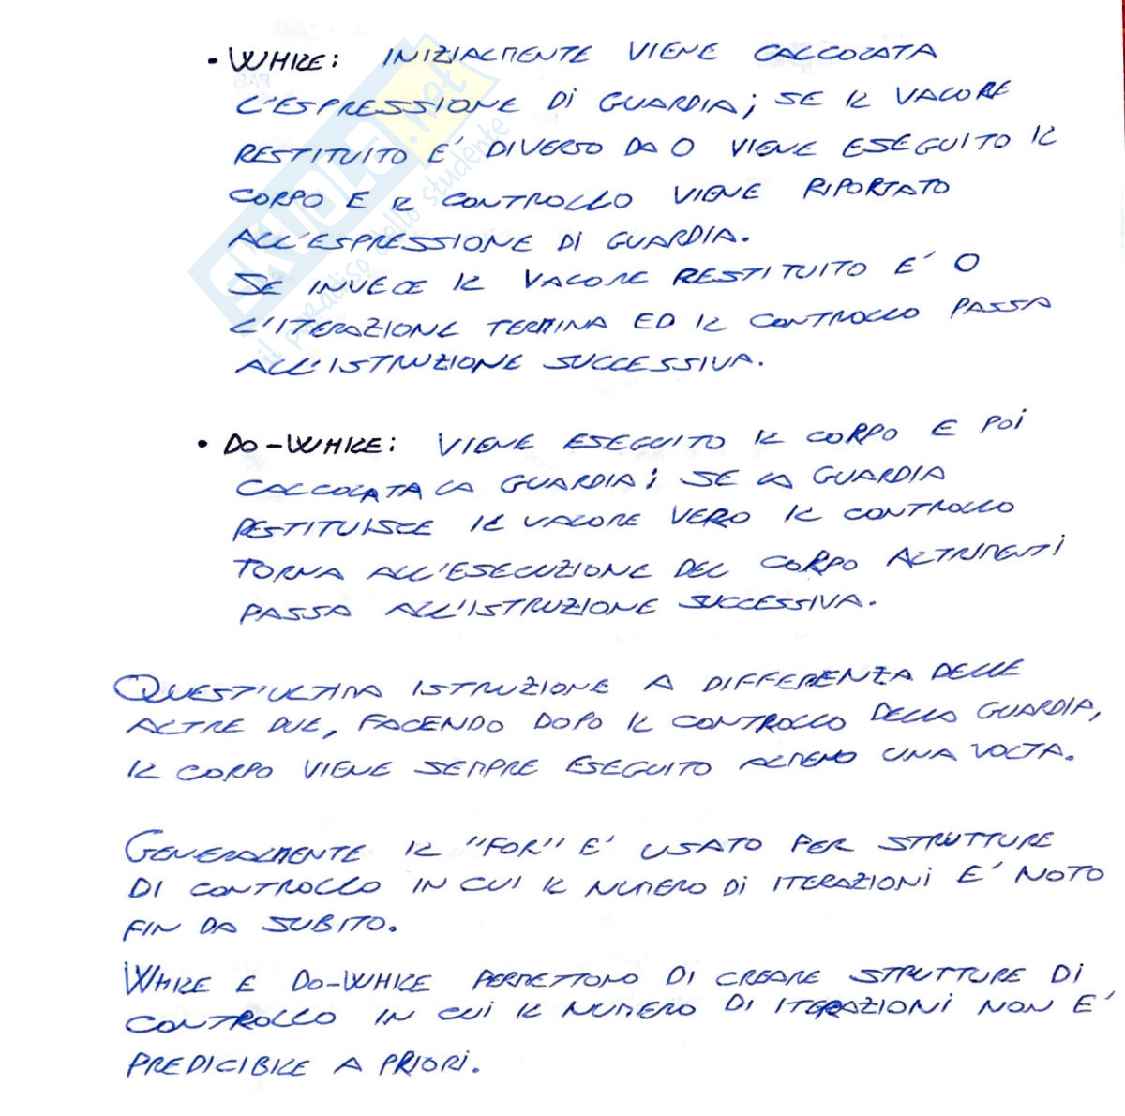 • WHILE: INIZIALMENTE VIENE CALCOLATA
L'ESPRESSIONE DI GUARDIA; SE IL VALORE
RESTITUITO E' DIVERSO DA 0 VIENE ESEGUITO IL
CORPO E IL CONTROLLO VIENE RIPORTATO
ALL'ESPRESSIONE DI GUARDIA.
SE INVECE IL VALORE RESTITUITO E' 0
L'ITERAZIONE TERMINA ED IL CONTROLLO PASSA
ALL'ISTRUZIONE SUCCESSIVA.
• DO-WHILE: VIENE ESEGUITO IL CORPO E POI
CALCOLATA LA GUARDIA; SE LA GUARDIA
RESTITUISCE IL VALORE VERO IL CONTROLLO
TORNA ALL'ESECUZIONE DEL CORPO ALTRIMENTI
PASSA ALL'ISTRUZIONE SUCCESSIVA.
QUEST'ULTIMA ISTRUZIONE A DIFFERENZA DELLE
ALTRE DUE, FACENDO DOPO IL CONTROLLO DELLA GUARDIA,
IL CORPO VIENE SEMPRE ESEGUITO ALMENO UNA VOLTA.
GENERALMENTE IL "FOR" E' USATO PER STRUTTURE
DI CONTROLLO IN CUI IL NUMERO DI ITERAZIONI E' NOTO
FIN DA SUBITO.
WHILE E DO-WHILE PERMETTONO DI CREARE STRUTTURE DI
CONTROLLO IN CUI IL NUMERO DI ITERAZIONI NON E'
PREDICIBILE A PRIORI.
SKUOLA.net
il paradiso dello studente